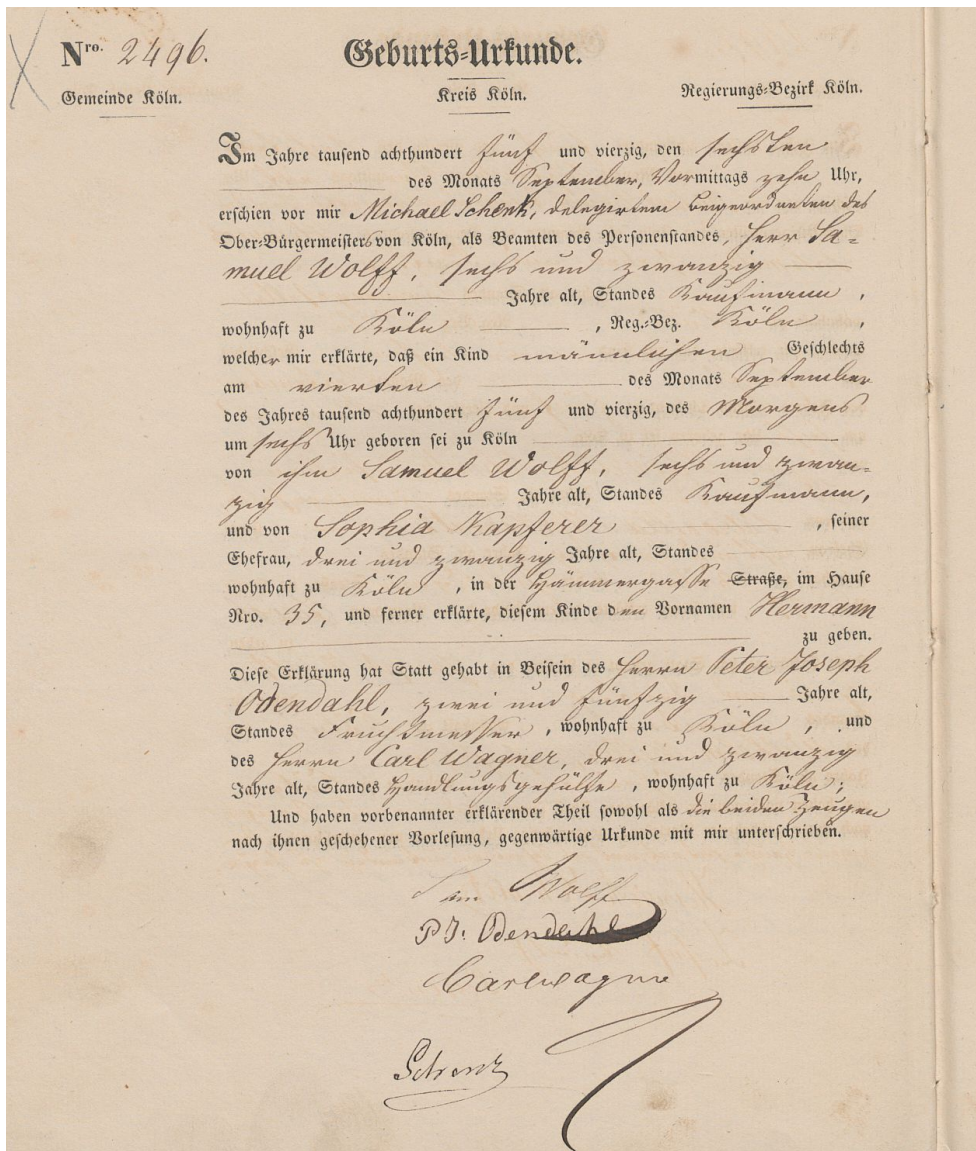 Nro. 2496.
Geburts-Urkunde.
Gemeinde Köln.
Kreis Köln.
Regierungs-Bezirk Köln.
Im Jahre tausend achthundert fünf und vierzig, den sechsten
des Monats September, Vormittags zehn Uhr,
erschien vor mir Michael Schenk, delegirtem Beigeordneten des
Ober-Bürgermeisters von Köln, als Beamten des Personenstandes, Herr Sa-
muel Wolff, sechs und zwanzig
Jahre alt, Standes Kaufmann,
wohnhaft zu Köln, Reg.-Bez. Köln,
welcher mir erklärte, daß ein Kind männlichen Geschlechts
am vierten des Monats September
des Jahres tausend achthundert fünf und vierzig, des Morgens
um sechs Uhr geboren sei zu Köln
von ihm Samuel Wolff, sechs und zwan-
zig Jahre alt, Standes Kaufmann,
und von Sophia Kapferer, seiner
Ehefrau, drei und zwanzig Jahre alt, Standes
wohnhaft zu Köln, in der Hämmergasse Straße, im Hause
Nro. 35, und ferner erklärte, diesem Kinde den Vornamen Hermann
zu geben.
Diese Erklärung hat Statt gehabt in Beisein des Herrn Peter Joseph
Odendahl, zwei und fünfzig Jahre alt,
Standes Fruchtmesser, wohnhaft zu Köln, und
des Herrn Carl Wagner, drei und zwanzig
Jahre alt, Standes Handlungsgehülfe, wohnhaft zu Köln;
Und haben vorbenannter erklärender Theil sowohl als die beiden Zeugen
nach ihnen geschehener Vorlesung, gegenwärtige Urkunde mit mir unterschrieben.
Sam Wolff
P J: Odendahl
Carl Wagner
Schenk